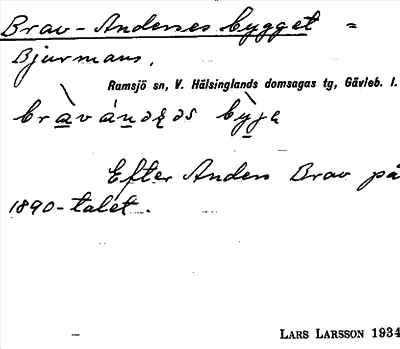 Brav-Anderses bygget =
Bjurmans.
Ramsjö sn, V. Hälsinglands domsagas tg, Gävleb. l.
Efter Anders Brav på
1890-talet.
LARS LARSSON 1934